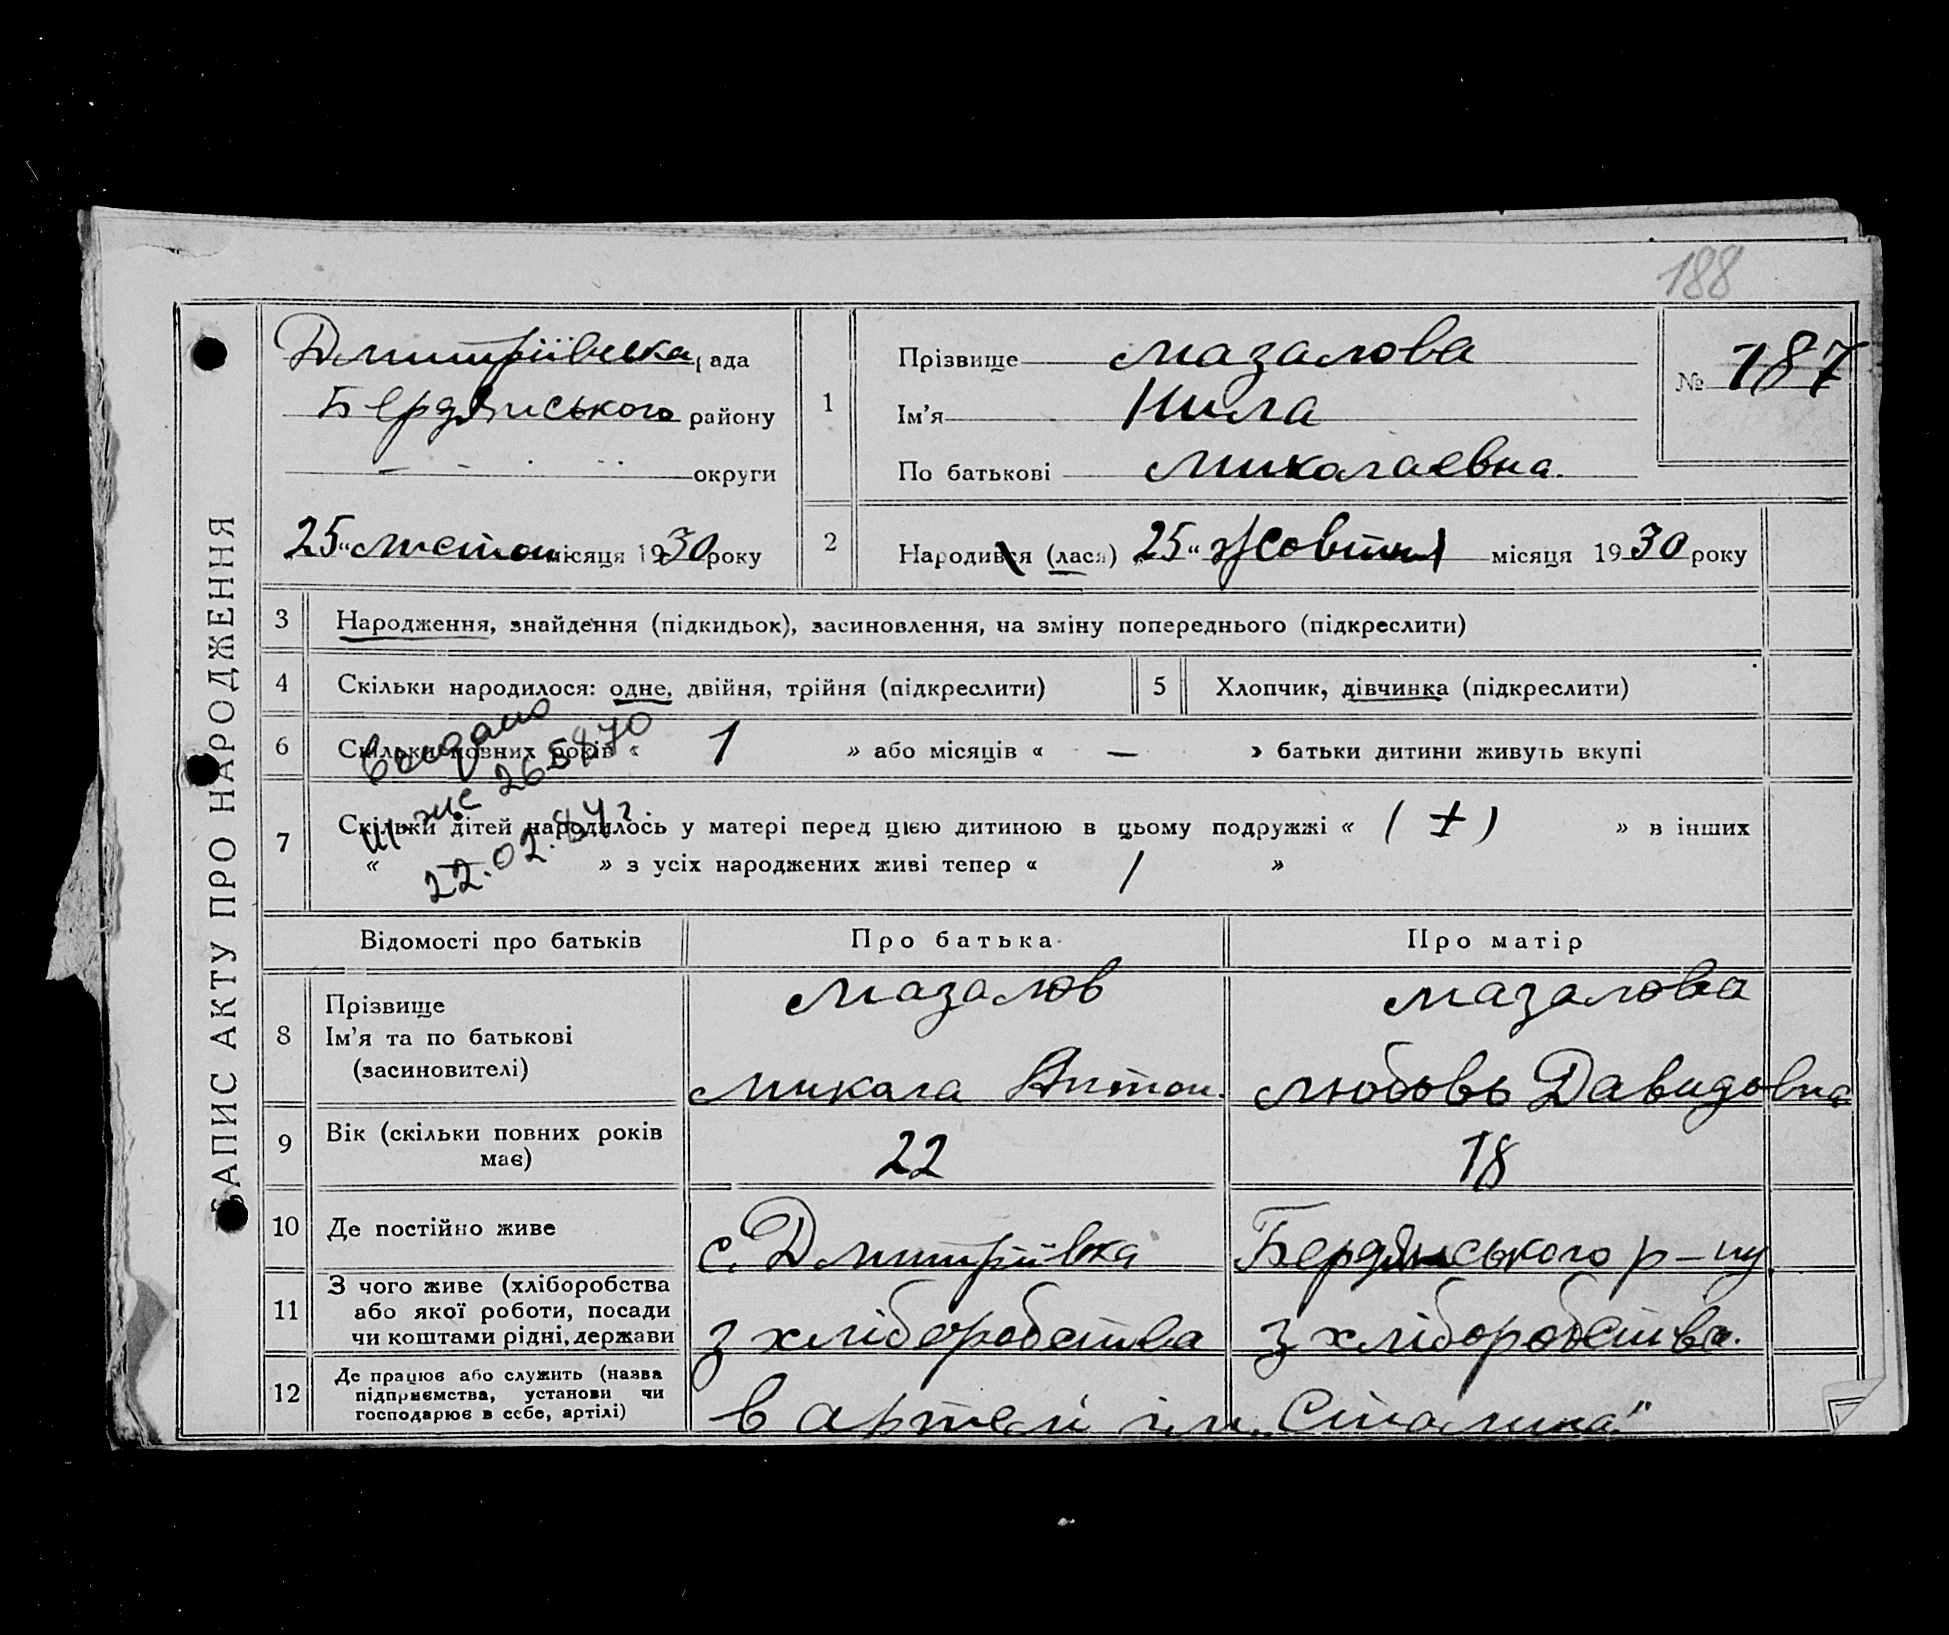 188
ЗАПИС АКТУ ПРО НАРОДЖЕННЯ
Дмитріївська рада
Бердянського району
округи
25 "листоп місяця 1930 року
1
Прізвище Мазалова
Ім'я Нила
По батькові Миколаєвна.
№ 187
2
Народився (лася) „25" Жовтня місяця 1930 року
3 Народження, знайдення (підкидьок), засиновлення, на зміну попереднього (підкреслити)
4 Скільки народилося: одне, двійня, трійня (підкреслити)
5 Хлопчик, дівчинка (підкреслити)
6 Скільки повних років « 1 » або місяців « — » батьки дитини живуть вкупі
7 Скільки дітей народилось у матері перед цією дитиною в цьому подружжі « ( + ) » в інших
« » з усіх народжених живі тепер « 1 »
265870
22.02.84 г.
Відомості про батьків Про батька Про матір
8 Прізвище
Ім'я та по батькові
(засиновителі)
Мазалов
Микола Антон.
Мазалова
Любовь Давидовна
9 Вік (скільки повних років
має)
22 18
10 Де постійно живе с. Дмитріївка Бердянського р-ну
11 З чого живе (хліборобства
або якої роботи, посади
чи коштами рідні, держави
з хліборобства з хліборобства.
12 Де працює або служить (назва
підприємства, установи чи
господарює в себе, артілі)
в артелі ім. „Сталина"